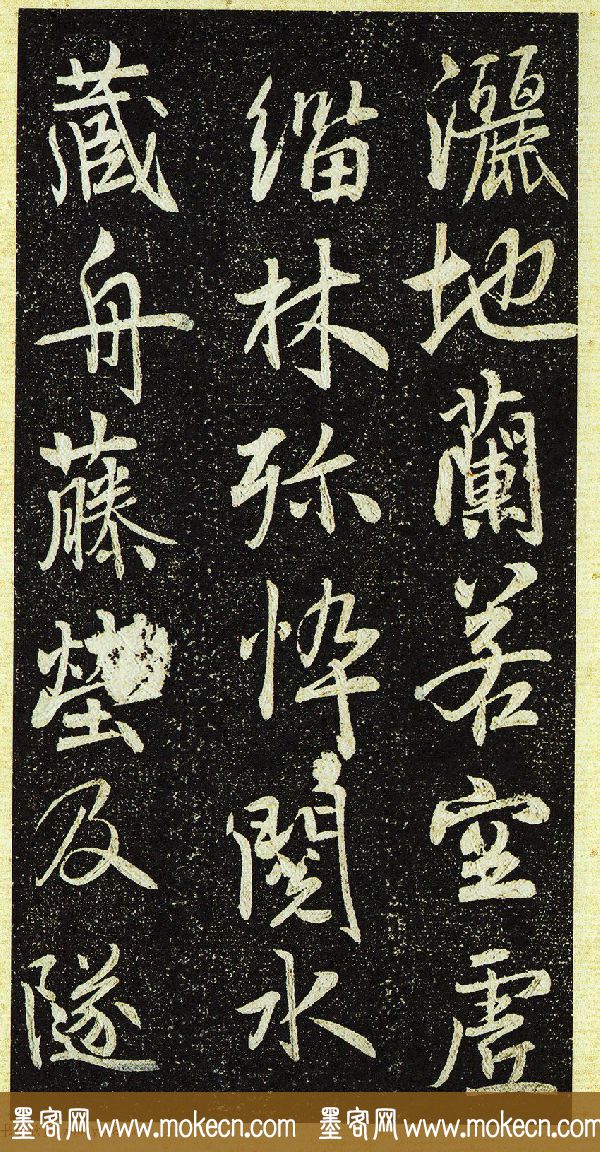 灑地蘭若空虛
緇林弥忰閲水
藏舟藤塋及隧
墨客网 www.mokecn.com 墨客网 www.mokecn.com